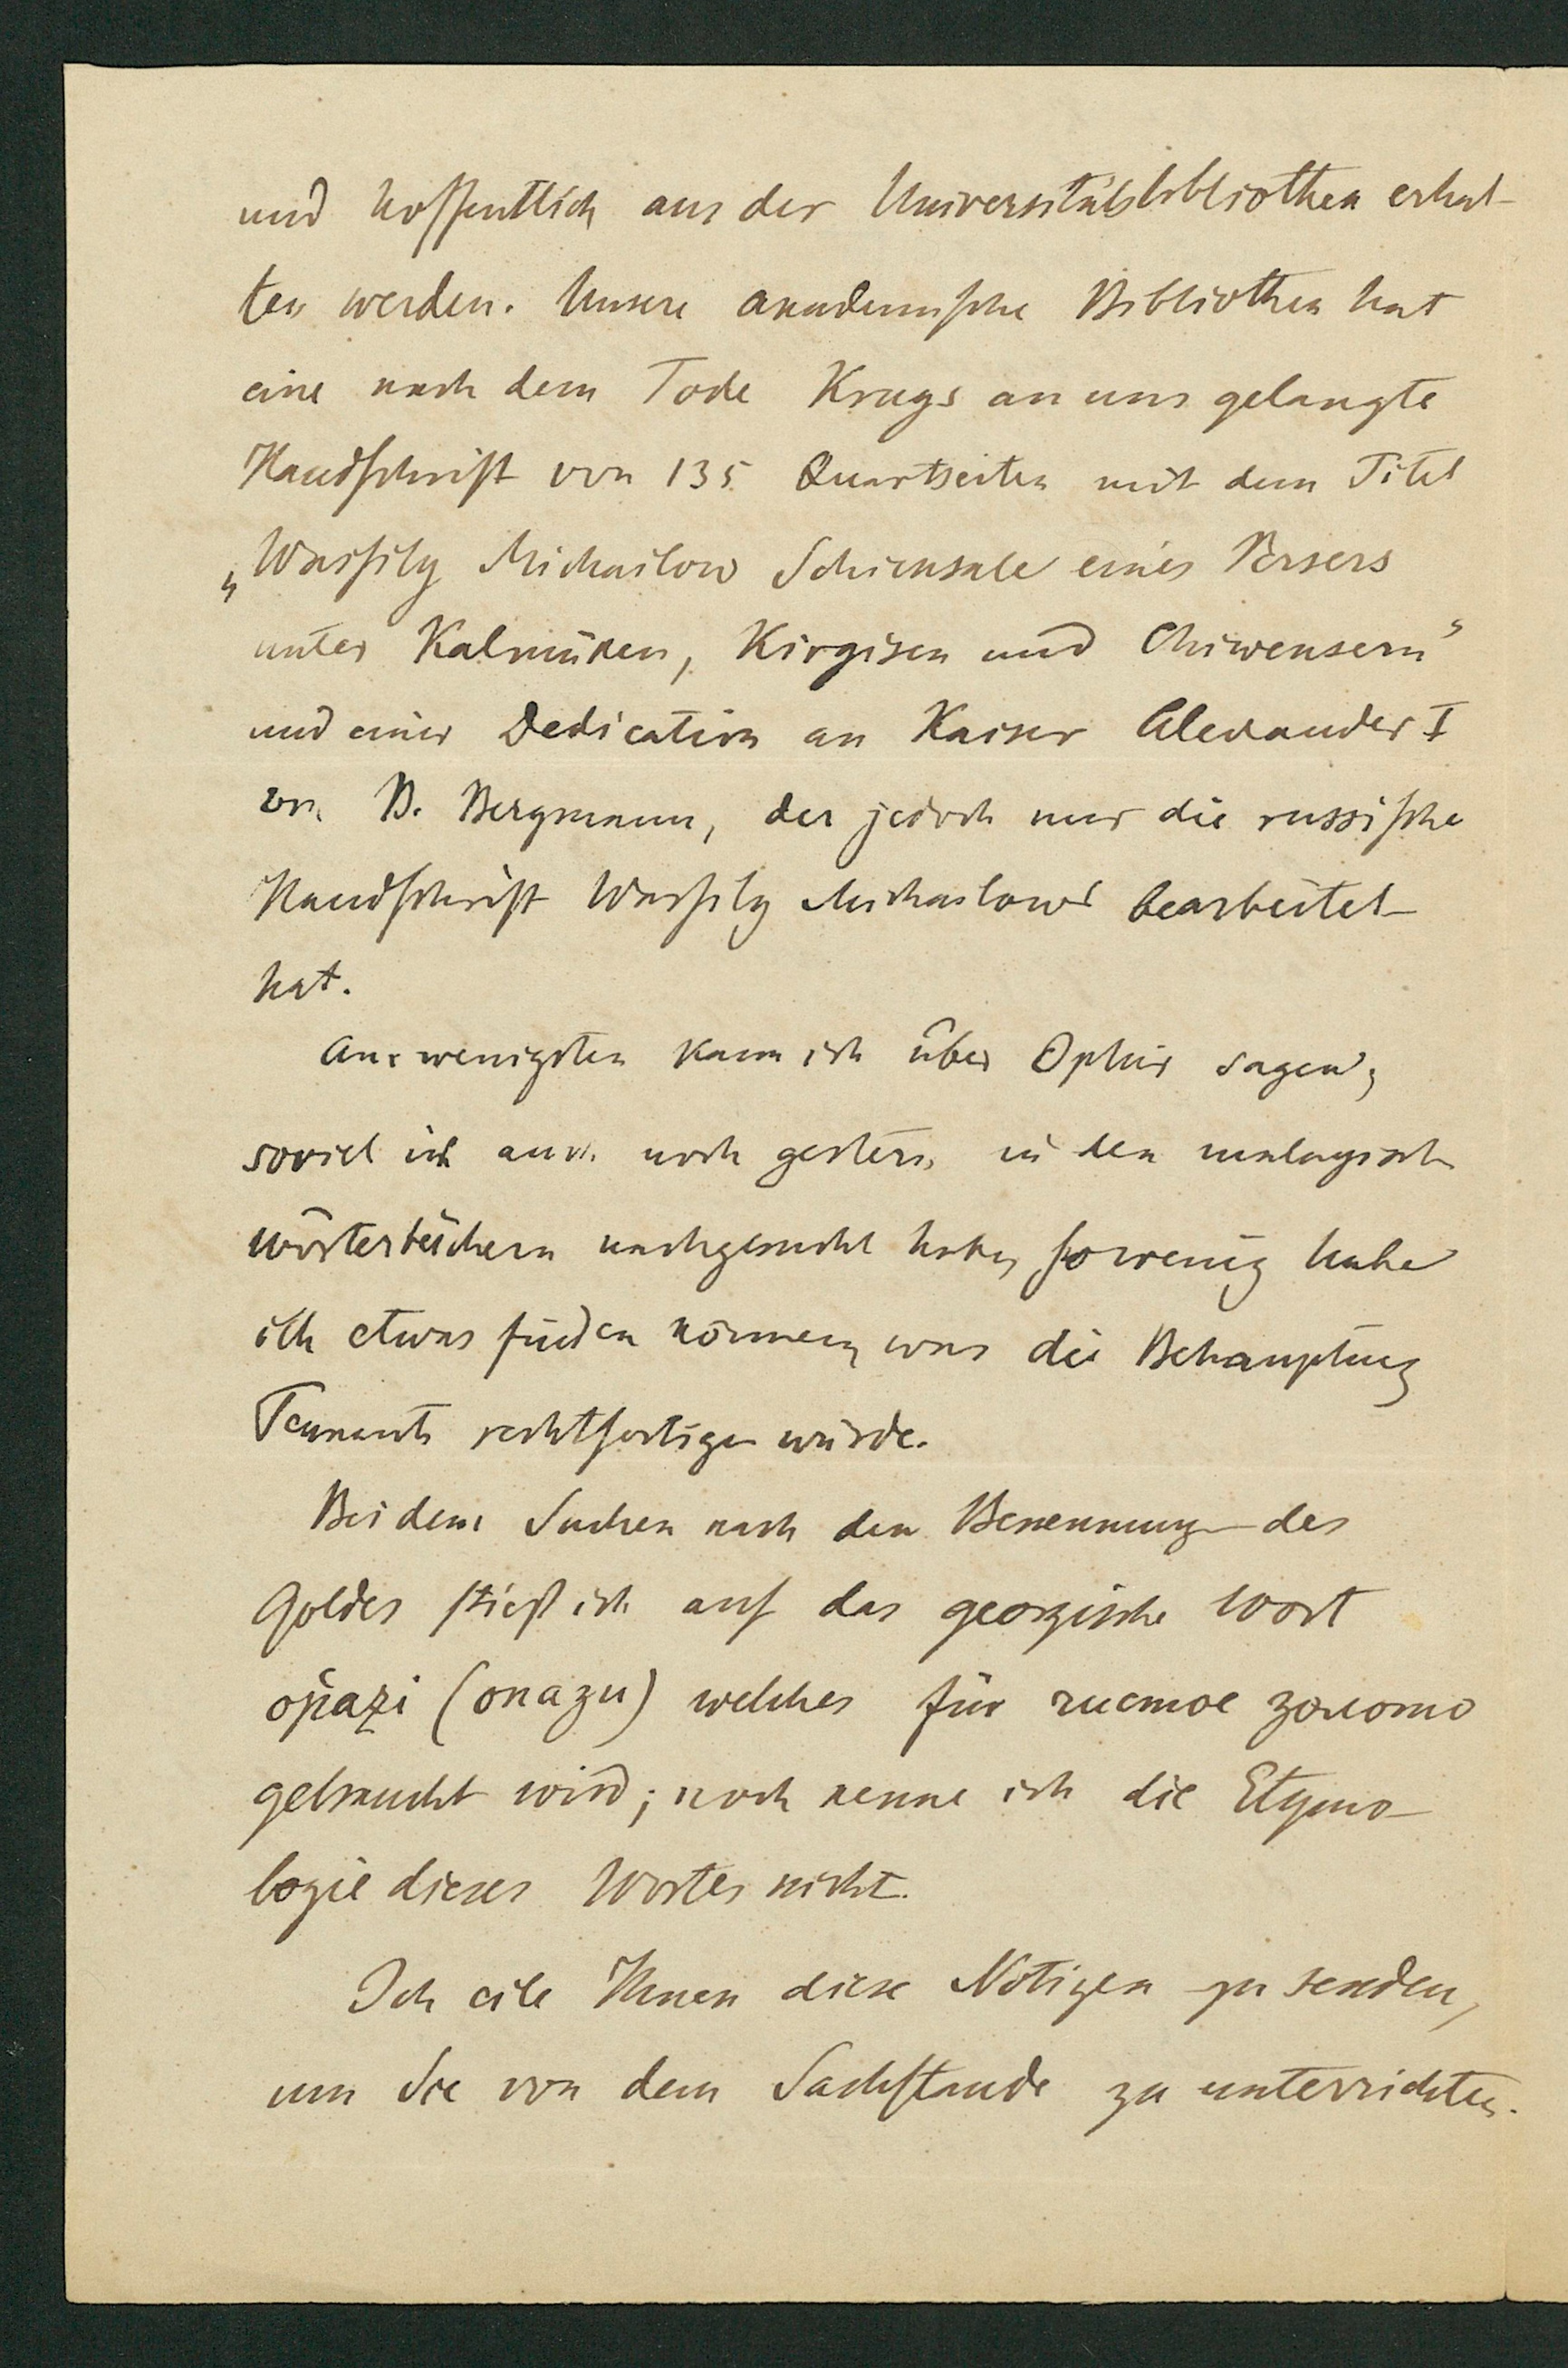 und hoffentlich aus der Universitätsbibliothek erhal-
ten werden. Unsere akademische Bibliothek hat
eine nach dem Tode Krugs an uns gelangte
Handschrift von 135 Quartseiten mit dem Titel
„Wassily Michailow Schicksale eines Persers
unter Kalmüken, Kirgisen und Chiwensern“
und einer Dedication an Kaiser Alexander I
von B. Bergmann, der jedoch nur die russische
Handschrift Wassily Michailows bearbeitet
hat.
Am wenigsten kann ich über Ophir sagen;
soviel ich auch noch gestern in den malayisch
Wörterbüchern nachgesucht habe, so wenig habe
ich etwas finden können, was die Behauptung
Tennants rechtfertigen würde.
Bei dem Suchen nach den Benennungen des
Goldes stieß ich auf das georgische Wort
op̓azi (опази) welches für чистое золото
gebraucht wird; noch kenne ich die Etymo-
logie dieses Wortes nicht.
Ich eile Ihnen diese Notizen zu senden,
um Sie von dem Sachstande zu unterrichten.